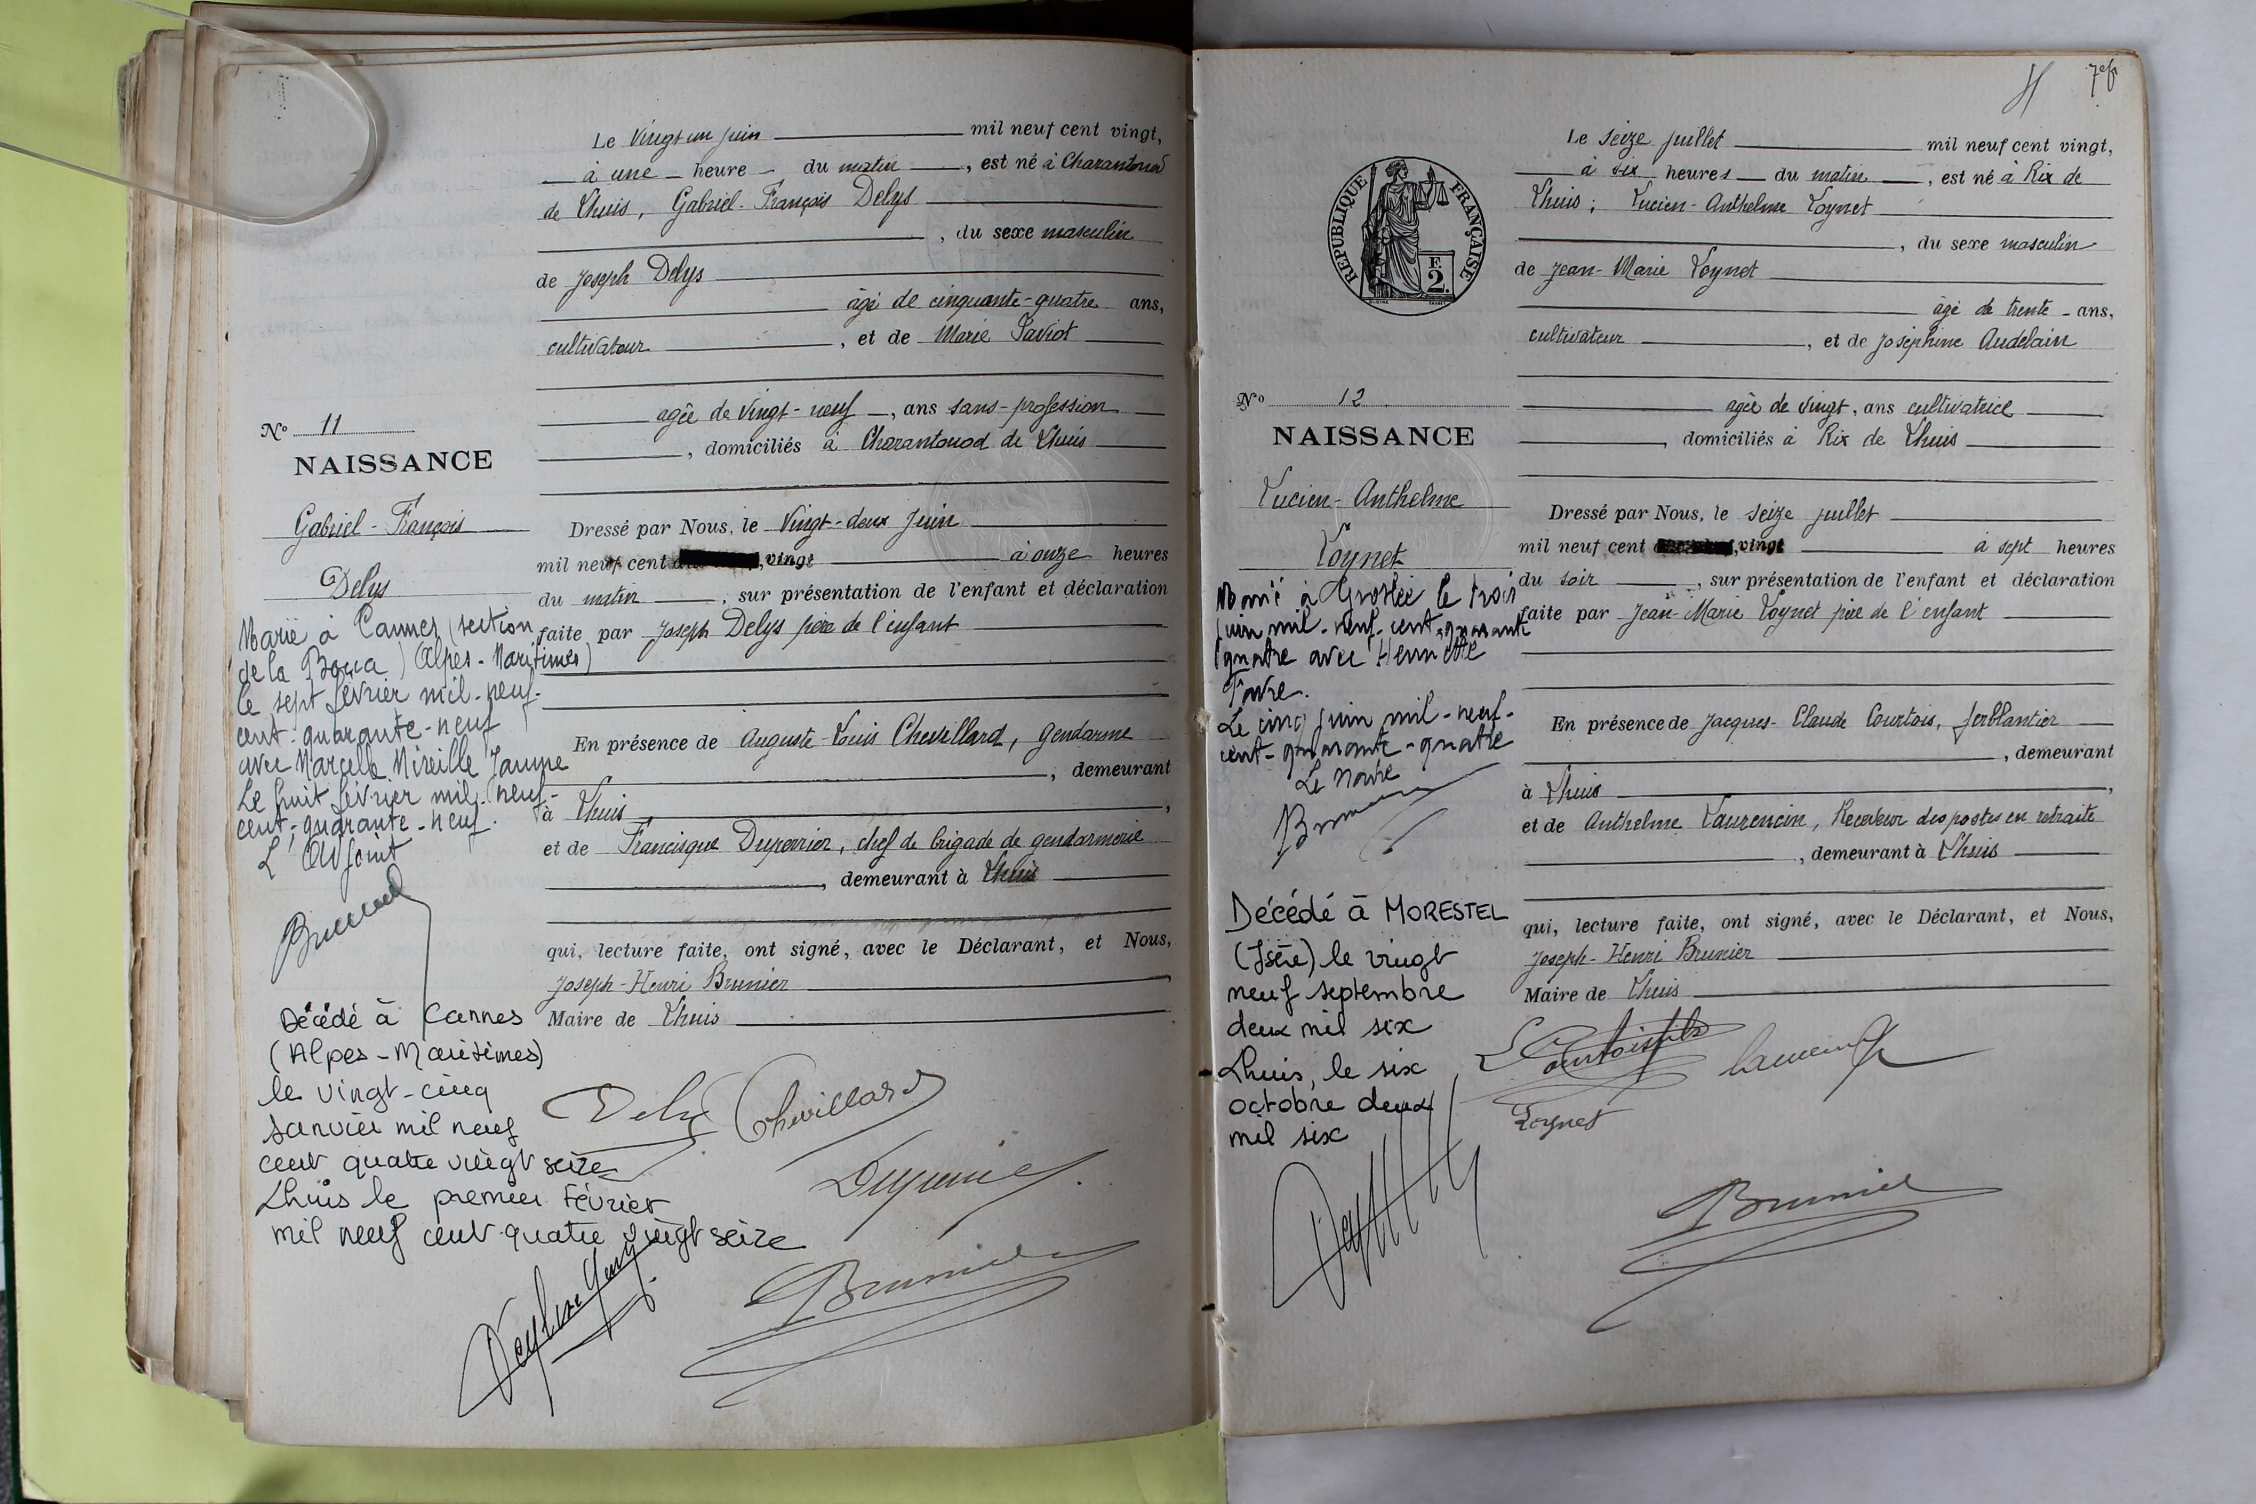 Le Vingt un juin mil neuf cent vingt,
à une heure du matin, est né à Charantonod
de Lhuis, Gabriel-François Delys
, du sexe masculin
de Joseph Delys
âgé de cinquante-quatre ans,
cultivateur, et de Marie Saviot
agée de vingt-neuf, ans sans-profession
, domiciliés à Charantonod de Lhuis
No 11
NAISSANCE
Gabriel-François
Delys
Dressé par Nous, le Vingt-deux Juin
mil neuf cent ,vingt à onze heures
du matin, sur présentation de l'enfant et déclaration
faite par Joseph Delys père de l'enfant
En présence de Auguste Louis Chevillard, Gendarme
, demeurant
à Lhuis,
et de Francisque Duperrier, chef de brigade de gendarmerie
, demeurant à Lhuis
qui, lecture faite, ont signé, avec le Déclarant, et Nous,
Joseph-Henri Brunier
Maire de Lhuis
Marié à Cannes (section
de la Bocca) (Alpes-Maritimes)
le sept février mil-neuf-
cent-quarante-neuf
avec Marcelle Mireille Jaume
Le huit février mil-neuf-
cent-quarante-neuf.
L'Adjoint
Décédé à Cannes
(Alpes-Maritimes)
le vingt-cinq
Janvier mil neuf
cent quatre vingt seize
Lhuis le premier Février
mil neuf cent quatre vingt seize
Delys Chevillard
Duperrier
Brunier
7e f
Le seize juillet mil neuf cent vingt,
à six heures du matin, est né à Rix de
Lhuis; Lucien-Anthelme Loynet
, du sexe masculin
de Jean-Marie Loynet
âgé de trente-ans,
cultivateur, et de Joséphine Audelain
agée de vingt, ans cultivatrice
, domiciliés à Rix de Lhuis
RÉPUBLIQUE FRANÇAISE
F.
2.
No 12
NAISSANCE
Lucien-Anthelme
Loynet
Dressé par Nous, le seize juillet
mil neuf cent ,vingt à sept heures
du soir, sur présentation de l'enfant et déclaration
faite par Jean-Marie Loynet père de l'enfant
En présence de Jacques-Claude Courtois, ferblantier
, demeurant
à Lhuis,
et de Anthelme Laurencin, Receveur des postes en retraite
, demeurant à Lhuis
qui, lecture faite, ont signé, avec le Déclarant, et Nous,
Joseph-Henri Brunier
Maire de Lhuis
Marié à Groslée le trois
juin mil-neuf-cent-quarante
quatre avec Henriette
Favre.
Le cinq juin mil-neuf-
cent-quarante-quatre
Le Maire
Décédé à MORESTEL
(Isère) le vingt
neuf septembre
deux mil six
Lhuis, le six
octobre deux
mil six
Courtois fils
Loynet
Brunier